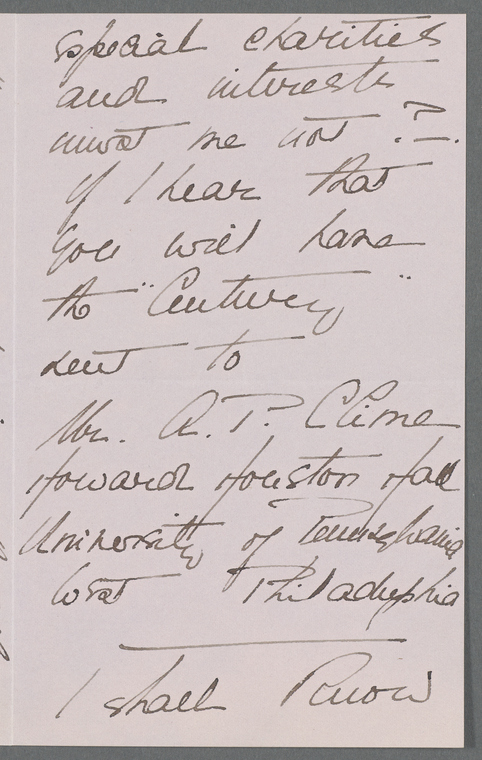 special charities
and interests
must we not?
If I hear that
you will have
the "Century"
sent to
Mr. A. P. Clime
Howard Houston Hall
University of Pennsylvania
West Philadelphia
I shall know